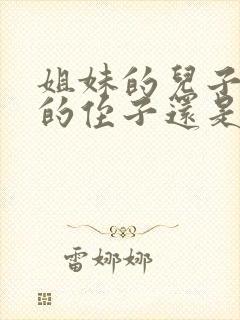 姐妹的兒子
的侄子還是
雷娜娜